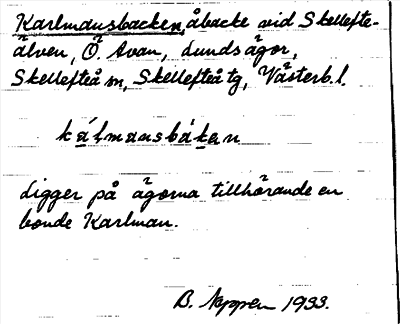 Karlmansbacken, åbacke vid Skellefte-
älven, Ö. Avan, Lundsägor,
Skellefteå sn, Skellefteå tg, Västerb. l.
kálmansbàken
Ligger på ägorna tillhörande en
bonde Karlman.
B. 1933.